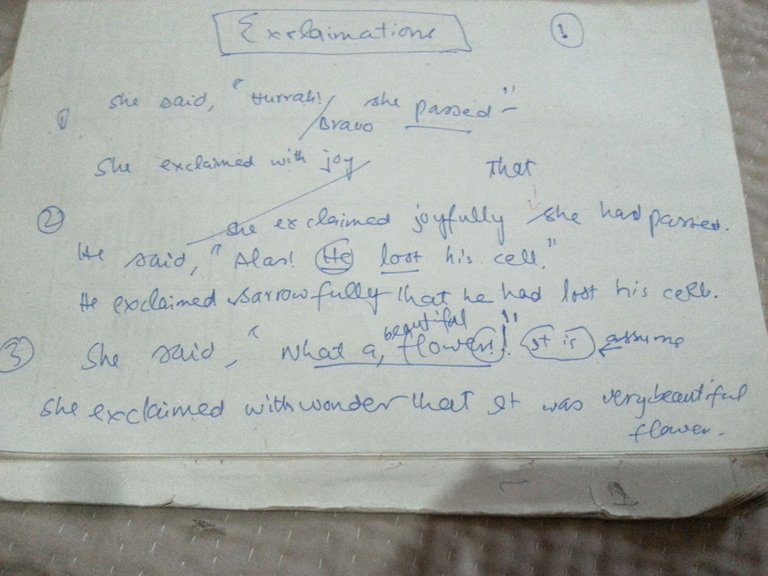 Exclaimations 1
① She said, "Hurrah! / Bravo she passed"
She exclaimed with joy That
she exclaimed joyfully she had passed.
② He said, "Alas! He lost his cell."
He exclaimed sarrowfully that he had lost his cell.
③ She said, "What a, beautiful flower!!" It is assume
She exclaimed with wonder that It was very beautiful
flower.